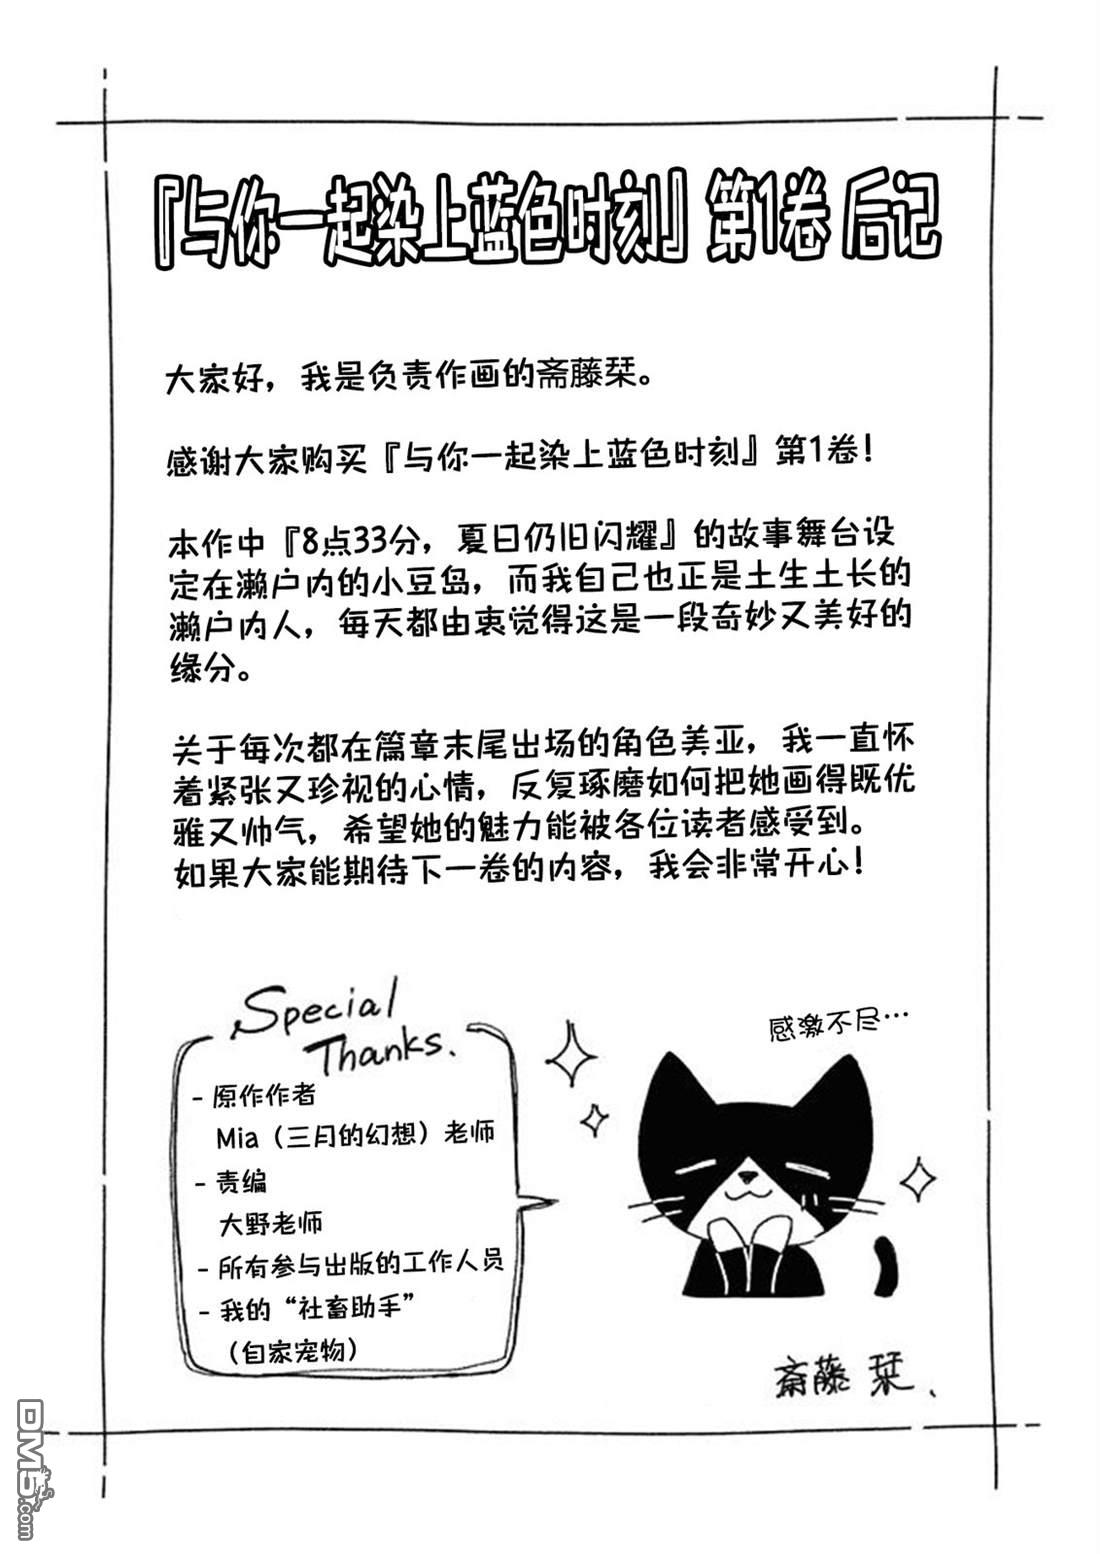 『与你一起染上蓝色时刻』第1卷 后记
大家好，我是负责作画的斋藤栞。
感谢大家购买『与你一起染上蓝色时刻』第1卷！
本作中『8点33分，夏日仍旧闪耀』的故事舞台设
定在濑户内的小豆岛，而我自己也正是土生土长的
濑户内人，每天都由衷觉得这是一段奇妙又美好的
缘分。
关于每次都在篇章末尾出场的角色美亚，我一直怀
着紧张又珍视的心情，反复琢磨如何把她画得既优
雅又帅气，希望她的魅力能被各位读者感受到。
如果大家能期待下一卷的内容，我会非常开心！
Special
Thanks.
- 原作作者
Mia（三月的幻想）老师
- 责编
大野老师
- 所有参与出版的工作人员
- 我的“社畜助手”
（自家宠物）
感激不尽…
斎藤 栞、
DM5.com